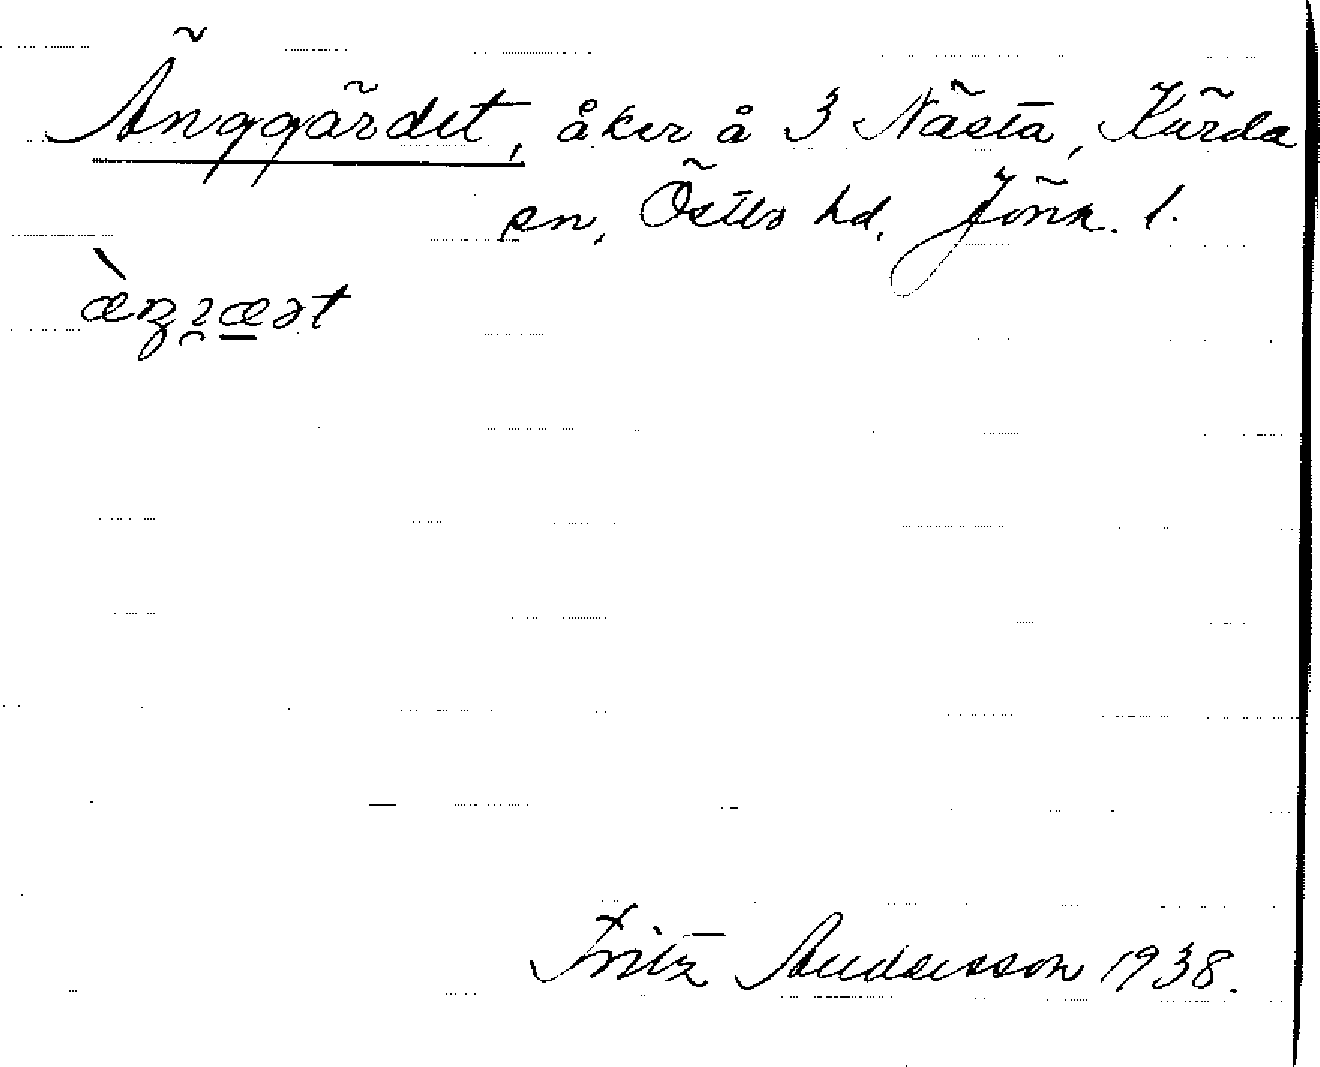 Änggärdet, åker å 3 Nästa, Kärda
sn, Östbo hd, Jönk. l.
Fritz Andersson 1938.